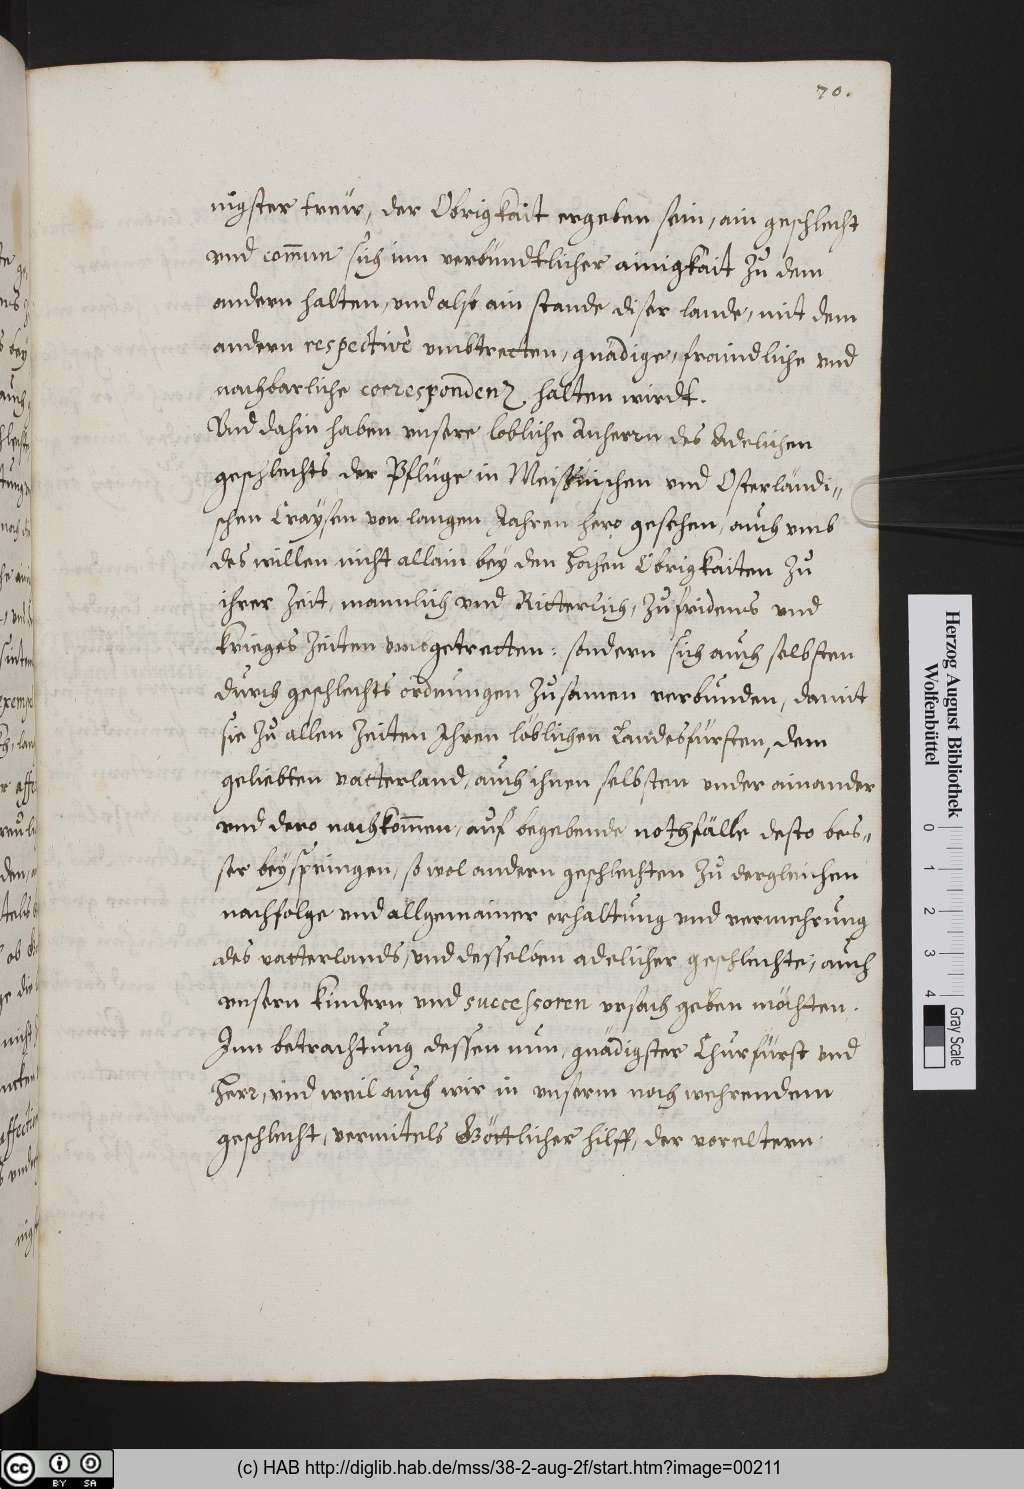 70.
nigster trew, der Obrigkait ergeben sein, ain geschlecht
vnd com̄un sich inn verbündtlicher ainigkait zu dem
andern halten, vnd also ain stande diser lande, mit dem
andern respectivè vmbtretten, gnädige, fraindliche vnd
nachbarliche correspondenz halten wirdt.
Vnd dahin haben vnsere lobliche Anherrn des Adelichen
geschlechts der Pflüge in Meißnischen vnd Osterländi=
schen Craÿsen von langen Jahren hero gesehen, auch vmb
des willen nicht allain beÿ den Hohen Obrigkaiten zu
ihrer Zeit, mannlich vnd Ritterlich, zu fridens vnd
krieges Zeiten vmbgetretten: sondern sich auch selbsten
durch geschlechts ordnungen zusamen verbunden, damit
sie zu allen Zeiten Ihren löblichen Landesfürsten, dem
geliebten vatterland, auch ihnen selbsten vnder ainander
vnd dero nachkom̄en, auf begebende nothfälle desto bes=
ser beÿspringen, so wol andern geschlechten zu dergleichen
nachfolge vnd allgemainer erhaltung vnd vermehrung
des vatterlands, vnd desselben adelicher geschlechte, auch
vnsern kindern vnd successoren vrsach geben möchten.
Inn betrachtung dessen nun, gnädigster Churfürst vnd
Herr, vnd weil auch wir in vnserm noch wehrendem
geschlecht, vermitels Göttlicher hilff, der voreltern
Herzog August Bibliothek
Wolfenbüttel
0 1 2 3 4
Gray Scale
cc BY SA
(c) HAB http://diglib.hab.de/mss/38-2-aug-2f/start.htm?image=00211